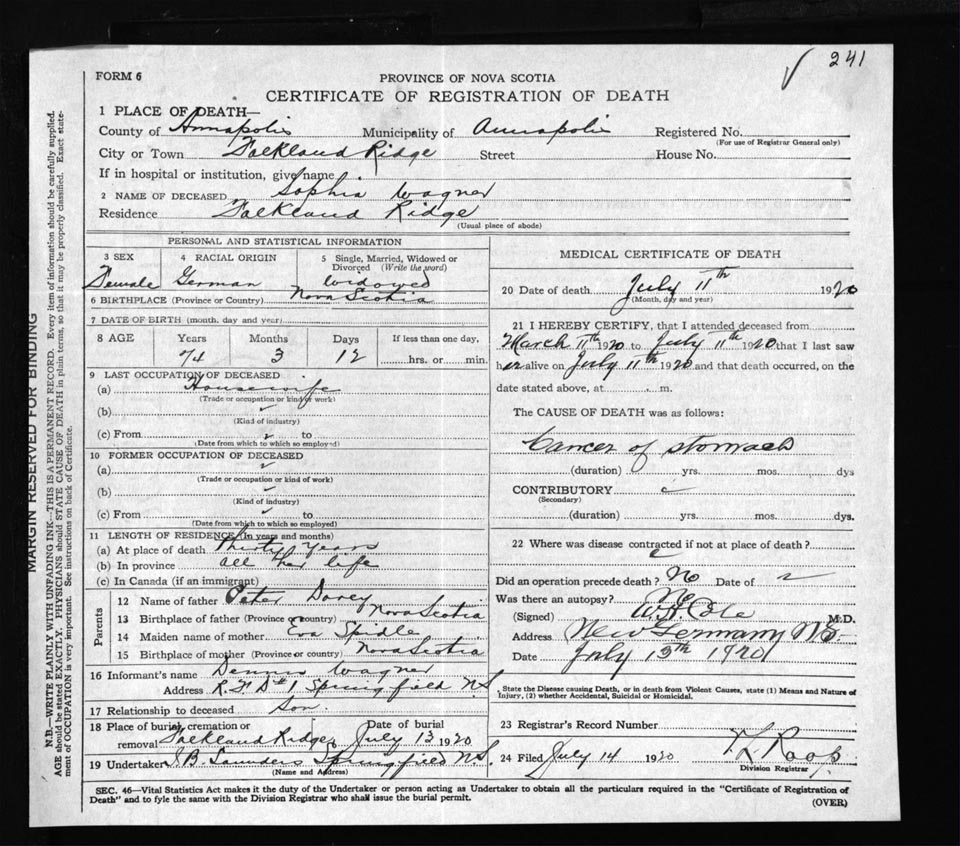 241
FORM 6
PROVINCE OF NOVA SCOTIA
CERTIFICATE OF REGISTRATION OF DEATH
1 PLACE OF DEATH—
County of Annapolis Municipality of Annapolis Registered No.
(For use of Registrar General only)
City or Town Falkland Ridge Street House No.
If in hospital or institution, give name
2 NAME OF DECEASED Sophia Wagner
Residence Falkland Ridge
(Usual place of abode)
PERSONAL AND STATISTICAL INFORMATION
3 SEX 4 RACIAL ORIGIN 5 Single, Married, Widowed or
Divorced (Write the word)
Female German Widowed
6 BIRTHPLACE (Province or Country) Nova Scotia
7 DATE OF BIRTH (month, day and year)
8 AGE Years Months Days If less than one day,
74 3 12 hrs. or min.
9 LAST OCCUPATION OF DECEASED
(a) Housewife
(Trade or occupation or kind of work)
(b)
(Kind of industry)
(c) From to
(Date from which to which so employed)
10 FORMER OCCUPATION OF DECEASED
(a)
(Trade or occupation or kind of work)
(b)
(Kind of industry)
(c) From to
(Date from which to which so employed)
11 LENGTH OF RESIDENCE (In years and months)
(a) At place of death Thirty years
(b) In province all her life
(c) In Canada (if an immigrant)
Parents
12 Name of father Peter Dorey
13 Birthplace of father (Province or country) Nova Scotia
14 Maiden name of mother Eva Spidle
15 Birthplace of mother (Province or country) Nova Scotia
16 Informant's name Dennis Wagner
Address R.F.D #1 Springfield NS
17 Relationship to deceased Son.
18 Place of burial, cremation or Date of burial
removal Falkland Ridge July 13 1920
19 Undertaker J.B. Saunders Springfield NS
(Name and Address)
MEDICAL CERTIFICATE OF DEATH
20 Date of death July 11th 1920
(Month, day and year)
21 I HEREBY CERTIFY, that I attended deceased from
March 11th 1920 to July 11th 1920 that I last saw
her alive on July 11th 1920 and that death occurred, on the
date stated above, at m.
The CAUSE OF DEATH was as follows:
Cancer of stomach
(duration) yrs. mos. dys
CONTRIBUTORY
(Secondary)
(duration) yrs. mos. dys.
22 Where was disease contracted if not at place of death?
Did an operation precede death? No Date of
Was there an autopsy? No
(Signed) Cole M.D.
Address New Germany NS
Date July 13th 1920
State the Disease causing Death, or in death from Violent Causes, state (1) Means and Nature of
Injury, (2) whether Accidental, Suicidal or Homicidal.
23 Registrar's Record Number
24 Filed July 14 1920 Roop
Division Registrar
SEC. 46—Vital Statistics Act makes it the duty of the Undertaker or person acting as Undertaker to obtain all the particulars required in the "Certificate of Registration of
Death" and to fyle the same with the Division Registrar who shall issue the burial permit.
(OVER)
MARGIN RESERVED FOR BINDING
N.B.—WRITE PLAINLY WITH UNFADING INK—THIS IS A PERMANENT RECORD. Every item of information should be carefully supplied.
AGE should be stated EXACTLY. PHYSICIANS should STATE CAUSE OF DEATH in plain terms, so that it may be properly classified. Exact state-
ment of OCCUPATION is very important. See instructions on back of Certificate.